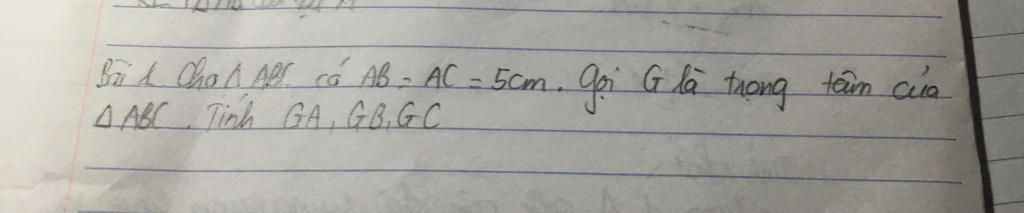 Bài 1 Cho Δ ABC có AB = AC = 5cm. Gọi G là trọng tâm của
Δ ABC. Tính GA, GB, GC